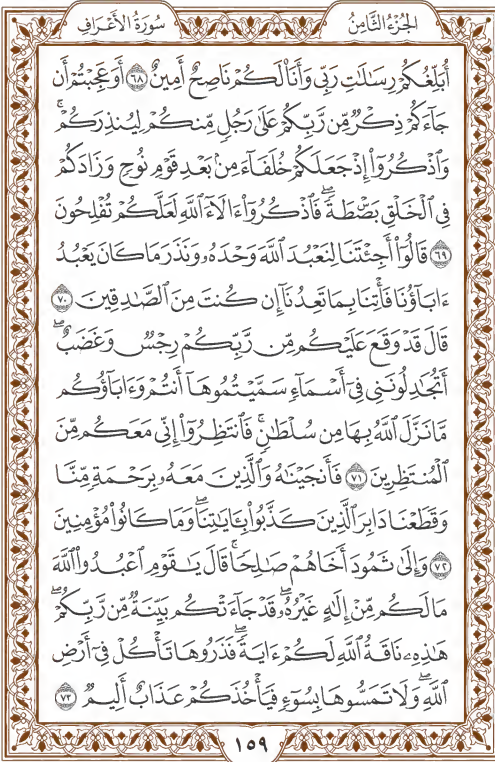 الجُزْءُ الثَّامِنُ
سُورَةُ الأَعْرَافِ
أُبَلِّغُكُمْ رِسَٰلَٰتِ رَبِّي وَأَنَا۠ لَكُمْ نَاصِحٌ أَمِينٌ ﴿٦٨﴾ أَوَعَجِبْتُمْ أَن
جَآءَكُمْ ذِكْرٌ مِّن رَّبِّكُمْ عَلَىٰ رَجُلٍ مِّنكُمْ لِيُنذِرَكُمْۚ
وَٱذْكُرُوٓا۟ إِذْ جَعَلَكُمْ خُلَفَآءَ مِنۢ بَعْدِ قَوْمِ نُوحٍ وَزَادَكُمْ
فِي ٱلْخَلْقِ بَصْۜطَةًۖ فَٱذْكُرُوٓا۟ ءَالَآءَ ٱللَّهِ لَعَلَّكُمْ تُفْلِحُونَ
﴿٦٩﴾ قَالُوٓا۟ أَجِئْتَنَا لِنَعْبُدَ ٱللَّهَ وَحْدَهُۥ وَنَذَرَ مَا كَانَ يَعْبُدُ
ءَابَآؤُنَا فَأْتِنَا بِمَا تَعِدُنَآ إِن كُنتَ مِنَ ٱلصَّٰدِقِينَ ﴿٧٠﴾
قَالَ قَدْ وَقَعَ عَلَيْكُم مِّن رَّبِّكُمْ رِجْسٌ وَغَضَبٌۖ
أَتُجَٰدِلُونَنِي فِيٓ أَسْمَآءٍ سَمَّيْتُمُوهَآ أَنتُمْ وَءَابَآؤُكُم
مَّا نَزَّلَ ٱللَّهُ بِهَا مِن سُلْطَٰنٍۚ فَٱنتَظِرُوٓا۟ إِنِّي مَعَكُم مِّنَ
ٱلْمُنتَظِرِينَ ﴿٧١﴾ فَأَنجَيْنَٰهُ وَٱلَّذِينَ مَعَهُۥ بِرَحْمَةٍ مِّنَّا
وَقَطَعْنَا دَابِرَ ٱلَّذِينَ كَذَّبُوا۟ بِـَٔايَٰتِنَاۖ وَمَا كَانُوا۟ مُؤْمِنِينَ
﴿٧٢﴾ وَإِلَىٰ ثَمُودَ أَخَاهُمْ صَٰلِحًاۗ قَالَ يَٰقَوْمِ ٱعْبُدُوا۟ ٱللَّهَ
مَا لَكُم مِّنْ إِلَٰهٍ غَيْرُهُۥۖ قَدْ جَآءَتْكُم بَيِّنَةٌ مِّن رَّبِّكُمْۖ
هَٰذِهِۦ نَاقَةُ ٱللَّهِ لَكُمْ ءَايَةًۖ فَذَرُوهَا تَأْكُلْ فِيٓ أَرْضِ
ٱللَّهِۖ وَلَا تَمَسُّوهَا بِسُوٓءٍ فَيَأْخُذَكُمْ عَذَابٌ أَلِيمٌ ﴿٧٣﴾
١٥٩